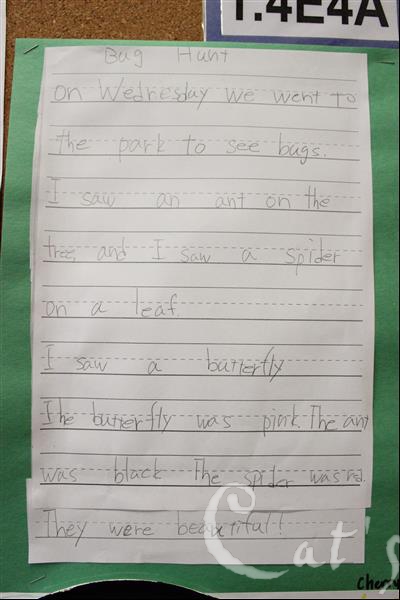 1.4E4A
Bug Hunt
on Wednesday we went to
the park to see bugs.
I saw an ant on the
tree, and I saw a spider
on a leaf.
I saw a butterfly
The butterfly was pink. The ant
was black The spider was red.
They were beautiful!
Cat's